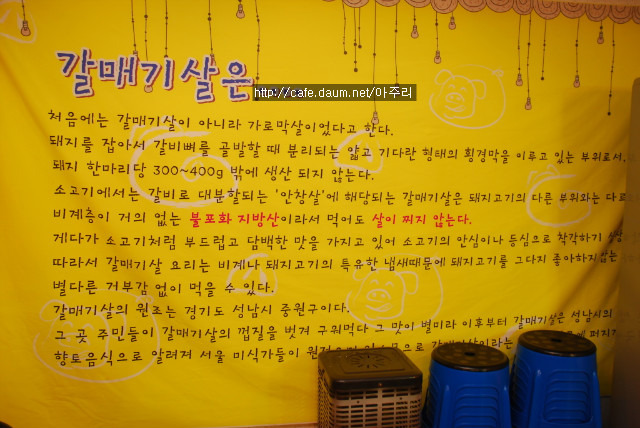 갈매기살은
http://cafe.daum.net/아주리
처음에는 갈매기살이 아니라 가로막살이었다고 한다.
돼지를 잡아서 갈비뼈를 골발할 때 분리되는 얇고 기다란 형태의 횡경막을 이루고 있는 부위로서,
돼지 한마리당 300~400g 밖에 생산 되지 않는다.
소고기에서는 갈비로 대분할되는 '안창살'에 해당되는 갈매기살은 돼지고기의 다른 부위와는
비계층이 거의 없는 불포화 지방산이라서 먹어도 살이 찌지 않는다.
게다가 소고기처럼 부드럽고 담백한 맛을 가지고 있어 소고기의 안심이나 등심으로 착각하기
따라서 갈매기살 요리는 비계나 돼지고기의 특유한 냄새때문에 돼지고기를 그다지 좋아하지않는
별다른 거부감 없이 먹을 수 있다.
갈매기살의 원조는 경기도 성남시 중원구이다.
그 곳 주민들이 갈매기살의 껍질을 벗겨 구워먹다 그 맛이 별미라 이후부터 갈매기살은 성남시의
향토음식으로 알려져 서울 미식가들이